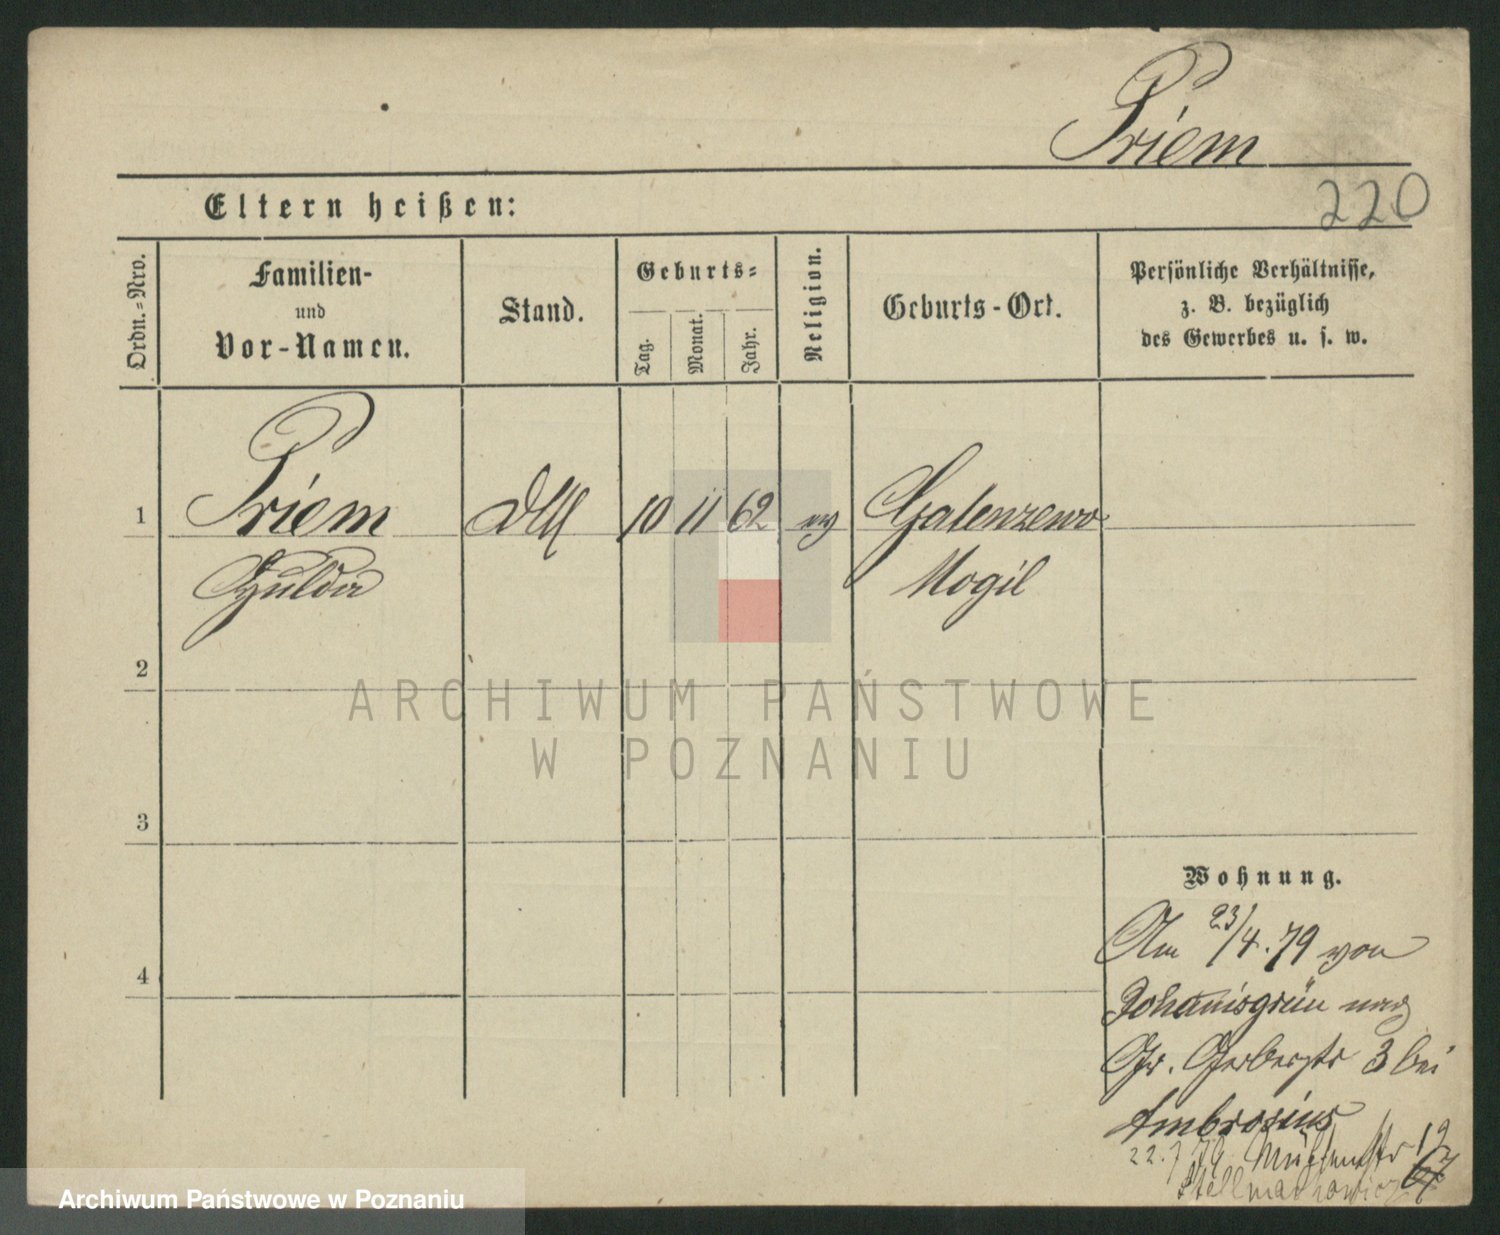 Priem
220
Eltern heißen:
Ordn.-Nro.
Familien-
und
Vor-Namen.
Stand.
Geburts-
Tag.
Monat.
Jahr.
Religion.
Geburts-Ort.
Persönliche Verhältnisse,
z. B. bezüglich
des Gewerbes u. s. w.
1
Priem
10 11 62
ev
Galenzewo
Hulda
Mogil
2
ARCHIWUM PAŃSTWOWE
W POZNANIU
3
Wohnung.
Am 23/4.79 von
4
Johanisgrün nach
Gr. Gerberstr 3 bei
Ambrosius
22.7.79 Mühlenstr
Stellmachowicz
Archiwum Państwowe w Poznaniu